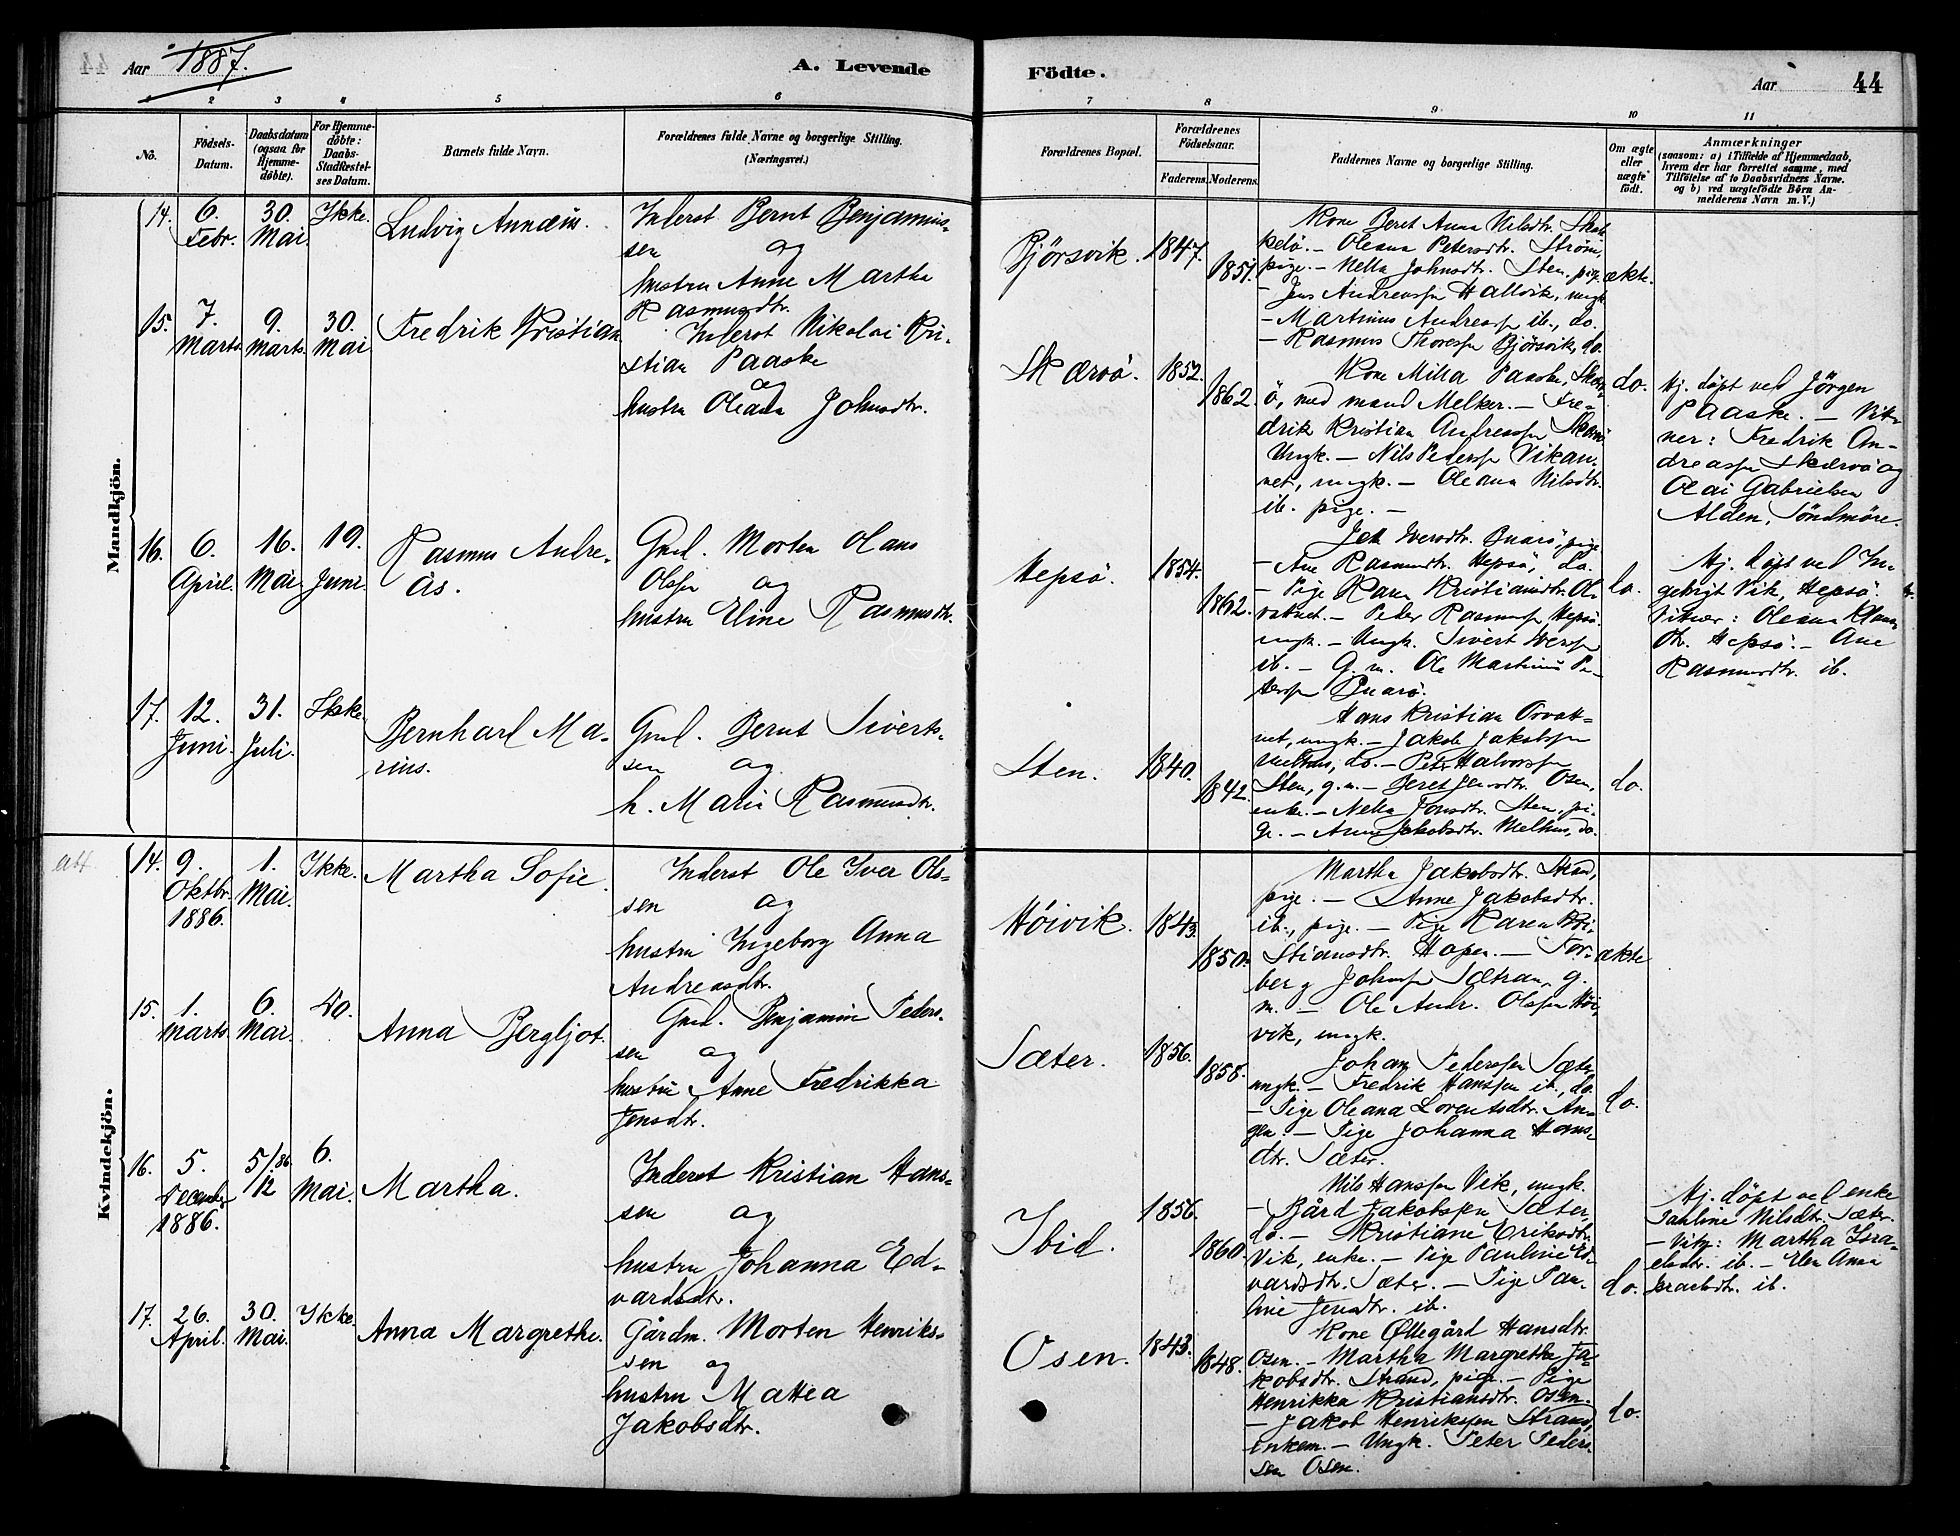 Aar 1887.
A. Levende
Födte.
Aar
44
2
3
4
5
6
7
8
9
10
11
No.
Födsels-
Datum.
Daabsdatum
(ogsaa for
Hjemme-
döbte).
For Hjemme-
döbte:
Daabs-
Stadfæstel-
ses Datum.
Barnets fulde Navn.
Forældrenes fulde Navne og borgerlige Stilling.
(Næringsvei.)
Forældrenes Bopæl.
Forældrenes
Födselsaar.
Faderens.
Moderens.
Faddernes Navne og borgerlige Stilling.
Om ægte
eller
uægte
födt.
Anmærkninger
(saasom: a) i Tilfælde af Hjemmedaab,
hvem der har forrettet samme, med
Tilföielse af to Daabsvidners Navne.
og b) ved uægtefödte Börn An-
melderens Navn m. V.)
Mandkjön.
14.
6.
Febr.
30.
Mai
Ikke.
Ludvig Annæus.
Inderst Bernt Benjamins-
sen og
hustru Anne Martha
Rasmusdtr.
Bjørsvik.
1847.
1851.
Kone Beret Anna Nilsdtr.
Oleana Petersdtr. Strøm,
pige. - Nella Johnsdtr. Sten, pige
- Jens Andreassen Hallvik, ungk
- Martinus Andreassen ib., do.
- Rasmus Thoressen Bjørsvik, do.
ækte.
15.
7.
Marts
9.
Marts.
30.
Mai
Fredrik Kristian
Inderst Nikolai Kri-
stian Paaske
og
hustru Oleana Johnsdtr.
Skærvö.
1852.
1862.
Kone Milla Paaske, Skærv-
ö, med mand Melker. - Fre-
drik Kristian Andreassen
Ungk. - Nils Pedersen Vikan-
net, ungk. - Oleana Nilsdtr.
ib. pige. -
do.
Hj. døpt ved Jörgen
Paaske. - Vit-
ner: Fredrik An-
dreassen Skærvö og
Olai Gabrielsen
Alden, Söndmöre.
16.
6.
April.
16.
Mai
19.
Juni.
Rasmus Andre-
as.
Gmd. Morten Olaus
Olsen og
hustru Eline Rasmusdtr.
Hepsö.
1854.
1862.
Iversdtr. pige
- Ane Rasmusdtr. Hepsö, do.
- Pige Karen Kristiansdtr.
- Peder Rasmussen Hepsö.
ungk. - Ungk. Sivert Iversen
ib. - G.m. Ole Martinus Pe-
tersen
do.
Hj. døpt ved In-
gebrigt Vik, Hepsö.
Vitner: Oleana
dtr. Hepsö. - Ane
Rasmusdtr. ib.
17.
12.
Juni.
31.
Juli.
Ikke.
Bernhard Ma-
rius.
Gmd. Bernt Siverts-
sen og
h. Marie Rasmusdtr.
Sten.
1840.
1842.
Hans Kristian
ungk. - Jakob Jakobsen
Melhus, do. - Peter Halvorsen
Sten, g.m. - Beret Jensdtr. Osen,
enke. - Nella Jonsdtr. Sten, pi-
ge. - Anne Jakobsdtr. Melhus, do.
do.
Kvindekjön.
14.
9.
Oktbr.
1886.
1.
Mai.
Ikke.
Martha Sofie.
Inderst Ole Iver Ols-
sen og
hustru Ingeborg Anna
Andreasdtr.
Höivik.
1843.
1850.
Martha Jakobsdtr.
pige. - Anne Jakobsdtr.
ib., pige. - Pige Karen Kri-
stiansdtr. Hopen. - Tor-
berg Johnsen Sætran, g.
m. - Ole Andr. Olssen Höi-
vik, ungk.
ækte
15.
1.
Marts.
6.
Mai.
do.
Anna Bergljot.
Gmd. Benjamin Peders-
sen og
hustru Anne Fredrikka
Jensdtr.
Sæter.
1856.
1858.
Johan Pederssen Sæter,
ungk. - Fredrik Hanssen ib., do.
- Pige Oleana Lorentsdtr. An-
gen. - Pige Johanna Hans-
dtr. Sæter.
do.
16.
5.
December
1886.
5/12 86.
6.
Mai.
Martha.
Inderst Kristian Hans-
sen og
hustru Johanna Ed-
vardsdtr.
Ibid.
1856.
1860.
Nils Hanssen Vik, ungk.
- Bård Jakobssen Sæter,
do. - Kristiane Eriksdtr.
Vik, enke. - Pige Pauline Ed-
vardsdtr. Sæter. - Pige Pau-
line Jensdtr. ib.
do.
Hj. døpt ved enke
Pauline Nilsdtr. Sæter.
- Vitn: Martha Isra-
elsdtr. ib. - Elen Anna
Israelsdtr. ib.
17.
26.
April.
30.
Mai.
Ikke.
Anna Margrethe.
Gårdm. Morten Henriks-
sen og
hustru Mattea
Jakobsdtr.
Osen.
1843.
1848.
Kone Øllegård Hansdtr.
Osen. - Martha Margrethe Ja-
kobsdtr. Strand, pige. - Pige
Henrikka Kristiansdtr. Osen.
- Jakob Henrikssen Strand,
enkem. - Ungk. Peter Peders-
sen Osen.
do.